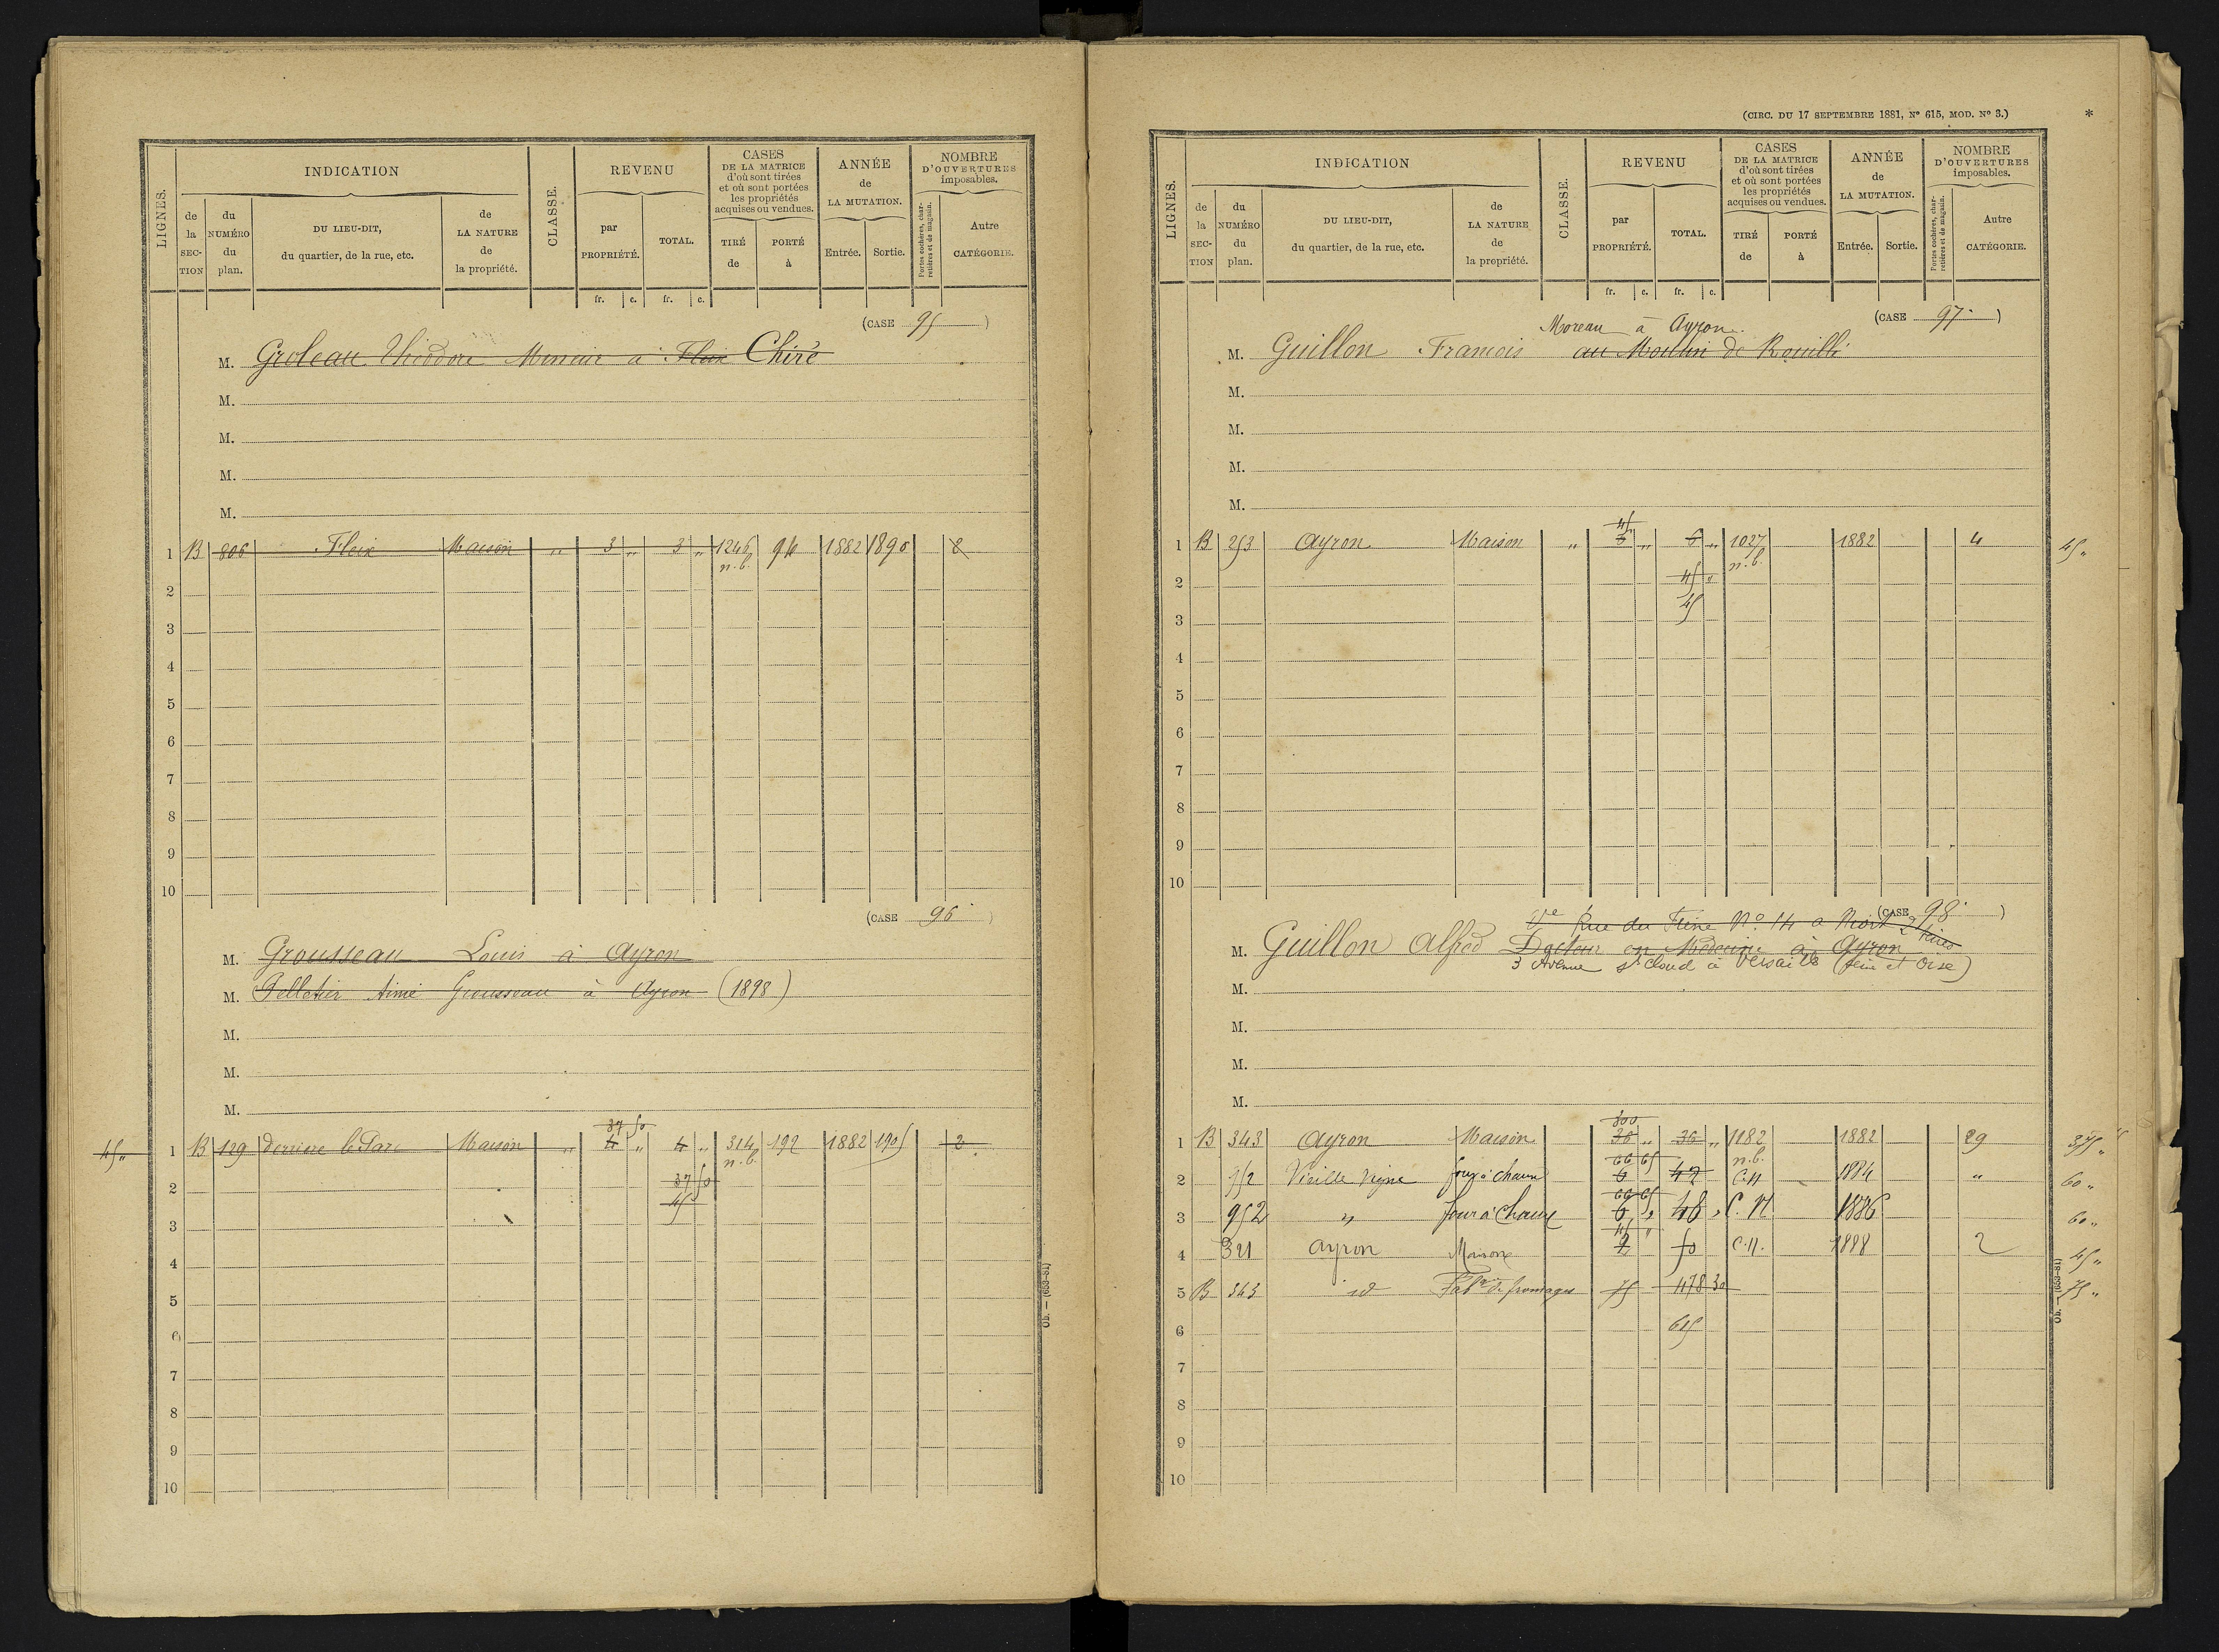 INDICATION
LIGNES.
de la SECTION
du NUMÉRO du plan.
DU LIEU-DIT, du quartier, de la rue, etc.
de LA NATURE de la propriété.
CLASSE.
REVENU
par PROPRIÉTÉ.
TOTAL.
CASES DE LA MATRICE d'où sont tirées et où sont portées les propriétés acquises ou vendues.
TIRÉ de
PORTÉ à
ANNÉE de LA MUTATION.
Entrée.
Sortie.
NOMBRE D'OUVERTURES imposables.
Portes cochères, charretières et de magasin.
Autre CATÉGORIE.
fr. c. fr. c.
(CASE 95)
M. Groleau Théodore Menuir a Fleix Chiré
M.
M.
M.
M.
1 B 806 Fleix Maison " 3 " 3 " 1246 94 1882 1890 2
n.b.
2
3
4
5
6
7
8
9
10
(CASE 96)
M. Grousseau Louis à Ayron
M. Pelletier Aimé Grousseau à Ayron (1898)
M.
M.
M.
37 50
45 " 1 B 129 derrière le Parc Maison " 4 " 4 " 314 192 1882 1905 2
n.b.
2 37 50
3 45
4
5
6
7
8
9
10
Ob. — (653-81)
(CIRC. DU 17 SEPTEMBRE 1881, N° 615, MOD. N° 3.) *
INDICATION
LIGNES.
de la SECTION
du NUMÉRO du plan.
DU LIEU-DIT, du quartier, de la rue, etc.
de LA NATURE de la propriété.
CLASSE.
REVENU
par PROPRIÉTÉ.
TOTAL.
CASES DE LA MATRICE d'où sont tirées et où sont portées les propriétés acquises ou vendues.
TIRÉ de
PORTÉ à
ANNÉE de LA MUTATION.
Entrée.
Sortie.
NOMBRE D'OUVERTURES imposables.
Portes cochères, charretières et de magasin.
Autre CATÉGORIE.
fr. c. fr. c.
(CASE 97)
Moreau à Ayron
M. Guillon François au Moulin de Rouillé
M.
M.
M.
M.
45
1 B 253 Ayron Maison " 6 " 6 " 1027 1882 4 45 "
n.b.
2 45 "
3 45
4
5
6
7
8
9
10
(CASE 98)
Vve Rue du Frène N° 14 a Niort 2 Sèvres
M. Guillon Alfred Docteur en Médecine à Ayron
3 Avenue St Cloud à Versailles (Seine et Oise)
M.
M.
M.
M.
300
1 B 343 Ayron Maison 36 " 36 " 1182 1882 29 375 "
66 65 n.b.
2 952 Vieille Vigne four à chaux 6 42 C.N 1884 " 60 "
66 65
3 952 " four à Chaux 6 " 48 " C.N. 1886 60 "
45 "
4 321 Ayron Maison 2 50 C.N. 1888 2 45 "
5 B 343 id Fabrie de fromages 75 478 30 75 "
6 615
7
8
9
10
Ob. — (653-81)